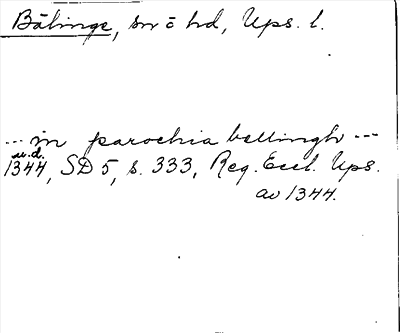 Bälinge, sn o hd, Ups. l.
--- in parochia bellingh ---
u.d.
1344, SD 5, s. 333, Reg. Eccl. Ups.
av 1344.